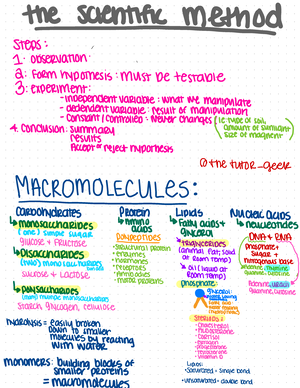 the scientific method
Steps:
1. observation
2. form hypothesis: must be testable
3. experiment:
-independent variable: what we manipulate
-dependent variable: result of manipulation
-constant/controlled: never changes (ie type of soil
amount of sunlight
size of magnet)
4. conclusion: summary
results
Accept or reject hypothesis
@the tutor_geek
MACROMOLECULES:
Carbohydrates
monosaccharides
(one) simple sugar
glucose + fructose
Disaccharides
(two) monosaccharides
sucrose + Lactose
polysaccharides
Starch, glycogen, cellulose
hydrolysis = easily broken
down to smaller
molecules by reacting
with water
monomers: building blocks of
smaller proteins
= macromolecules
Protein
amino
acids
Polypeptides
structural protein
enzymes
hormones
receptors
Lipids
Fatty acids+
glycerol
TRIGLYCERIDES
(animal fat, solid
@ room temp)
oil (liquid at
room temp)
phosphate:
Steroids:
cholesterol
Lipids:
Saturated = single bond
Unsaturated = double bond
Nucleic acids
nucleotides
DNA + RNA
Phosphate+
sugar +
nitrogenous base